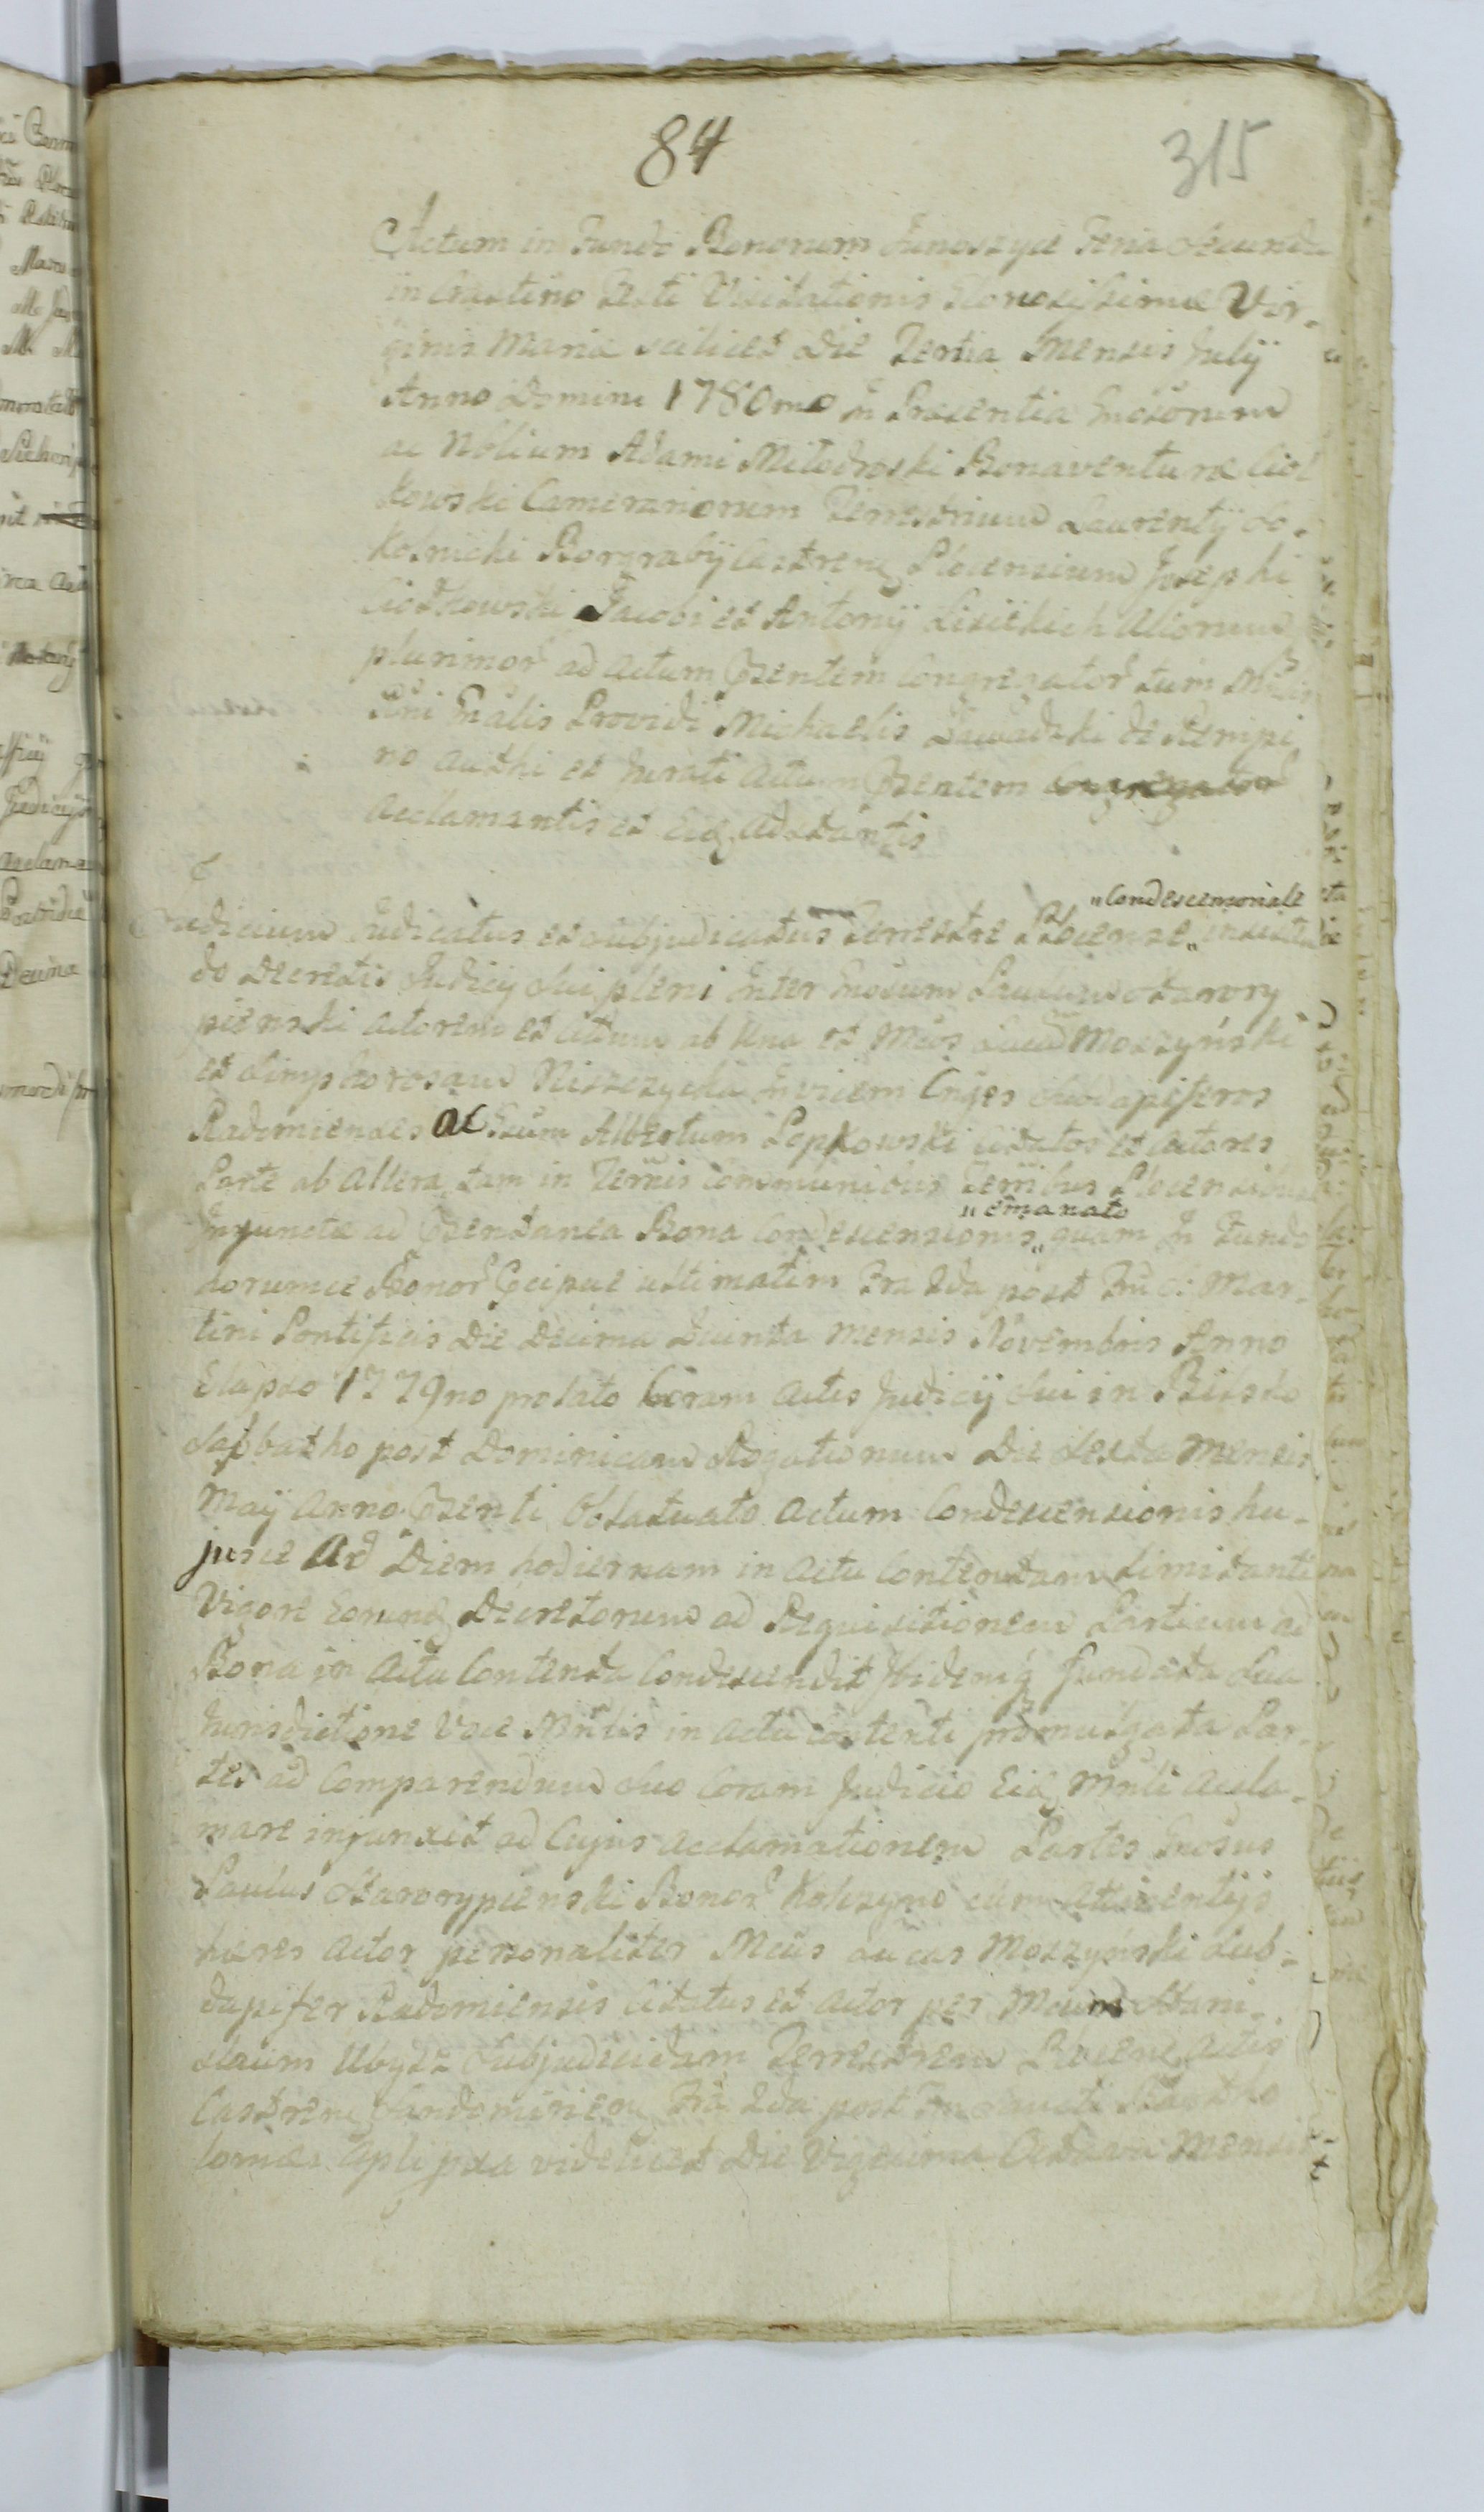 84
315
Actum in Fundo Bonorum Junoszyce Feria Secunda
in Crastino Festi Visitationis Gloriosissimæ Vir-
ginis Mariæ scilicet Die Tertia Mensis Julij
Anno Domini 1780mo In Præsentia
ac Nblium Adami Miłodroski Bonaventuræ Cioł
kowski Camerariorum Terrestrium Laurentij So-
kolnicki Borgrabij Castren Plocensium Josephi
Ciołkowski Jacobi et Antonij Lisickich Aliorum
plurimor ad Actum Psentem Congregator tum
Providi Michaelis Zawadzki de Rempi
no Authi et Jurati Actum Psentem
Acclamantis et Eidq Adstantis
Judicium Judicatus et Subjudicatus Terrestre Plocense „ insisten
„Condescensoriale
do Decretis Judicij Sui pleni Inter Paulum Starory
pienski Actorem et Cittum ab Una et Mcos Lucam Moszyński
et Simphorosam Niszczycka Invicem Cnges Subdapiferos
Radomienses ac Albertum Łepkowski Citatos et Actores
Parte ab Altera tam in Terris Communibus Terribus Plocensibus
Injunctæ ad Psentanea Bona Condescensionis „ quam In Fundo
„emanato
horumce Bonor Pcipue ultimatim Fra 2da post Fm S. Mar-
tini Pontificis Die Decima Quinta Mensis Novembris Anno
Elapso 1779no prolato Coram Actis Judicij Sui in Bilsko
Sabbatho post Dominicam Rogationum Die Sexta Mensis
Maij Anno Psenti Oblatuato Actum Condescensionis hu-
jusce Ad Diem hodiernam in Actu Contentam Limitanti
Vigore Eorundq Decretorum ad Requisitionem Partium ad
Bona in Actu Contenta Condescendit Ibidemq fundata Sua
Jurisdictione Voce Mnrlis in Actu contenti promulgata Par-
tes ad Comparendum Suo Coram Judicio Eidq Mnrli Accla-
mare injunxit ad Cujus Acclamationem Partes
Paulus Starorypienski Bonor Kolczyno cum Attinentijs
hæres Actor personaliter Mcus Lucas Moszyński Sub-
dapifer Radomiensis Citatus et Actor per Mcum Stani-
slaum Ubysz Subjudicidam Terrestrem Plocen Actis
Castren Sandomirien Fra 2da post Fm Sancti Bartho
lomæi Apli pxa videlicet Die Vigesima Octava Mensis